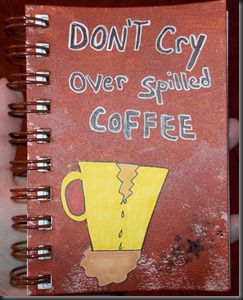 DON'T Cry
Over Spilled
COFFEE